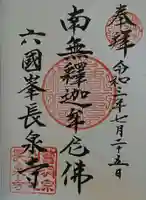 奉拝 令和二年七月二十五日
南無釋迦牟尼佛
六國峯長泉寺